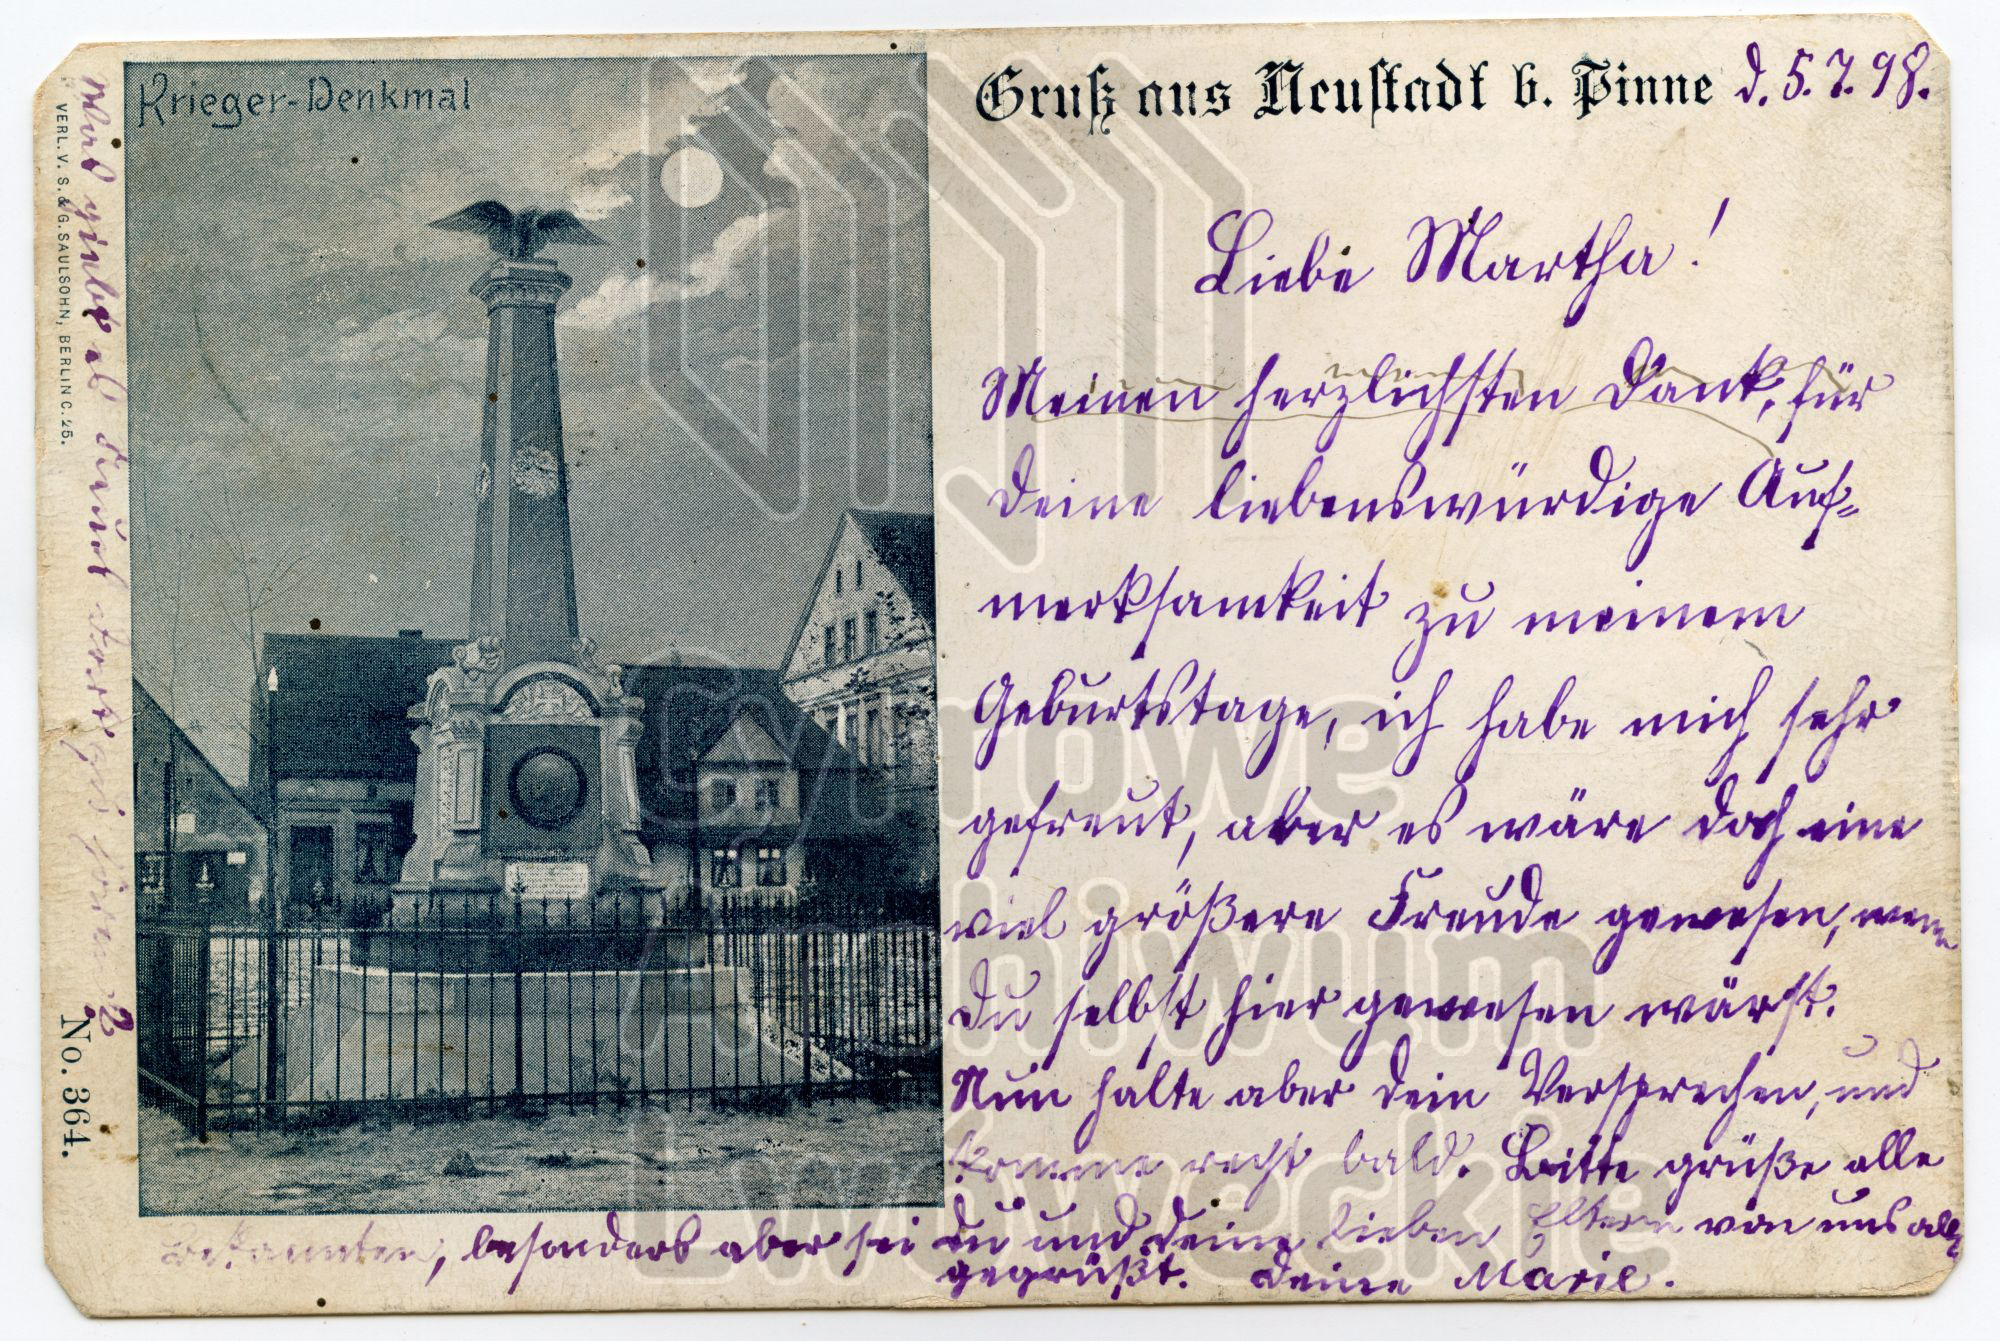 Krieger-Denkmal
Gruß aus Neustadt b. Pinne d. 5.7.98.
Liebe Martha!
Meinen herzlichsten Dank, für
Deine liebenswürdige Auf=
merksamkeit zu meinem
Geburtstage, ich habe mich sehr
gefreut, aber es wäre doch eine
viel größere Freude gewesen, wenn
Du selbst hier gewesen wärst.
Nun halte aber Dein Versprechen, und
komme recht bald. Bitte grüße alle
Bekannten, besonders aber sei Du und Deine lieben Eltern von uns allen
gegrüßt. Deine Marie.
Was giebt es Neues dort zu hören?
VERL. V. S. & G. SAULSOHN, BERLIN C. 25.
No. 364.
Cyfrowe
Archiwum
Lwóweckie